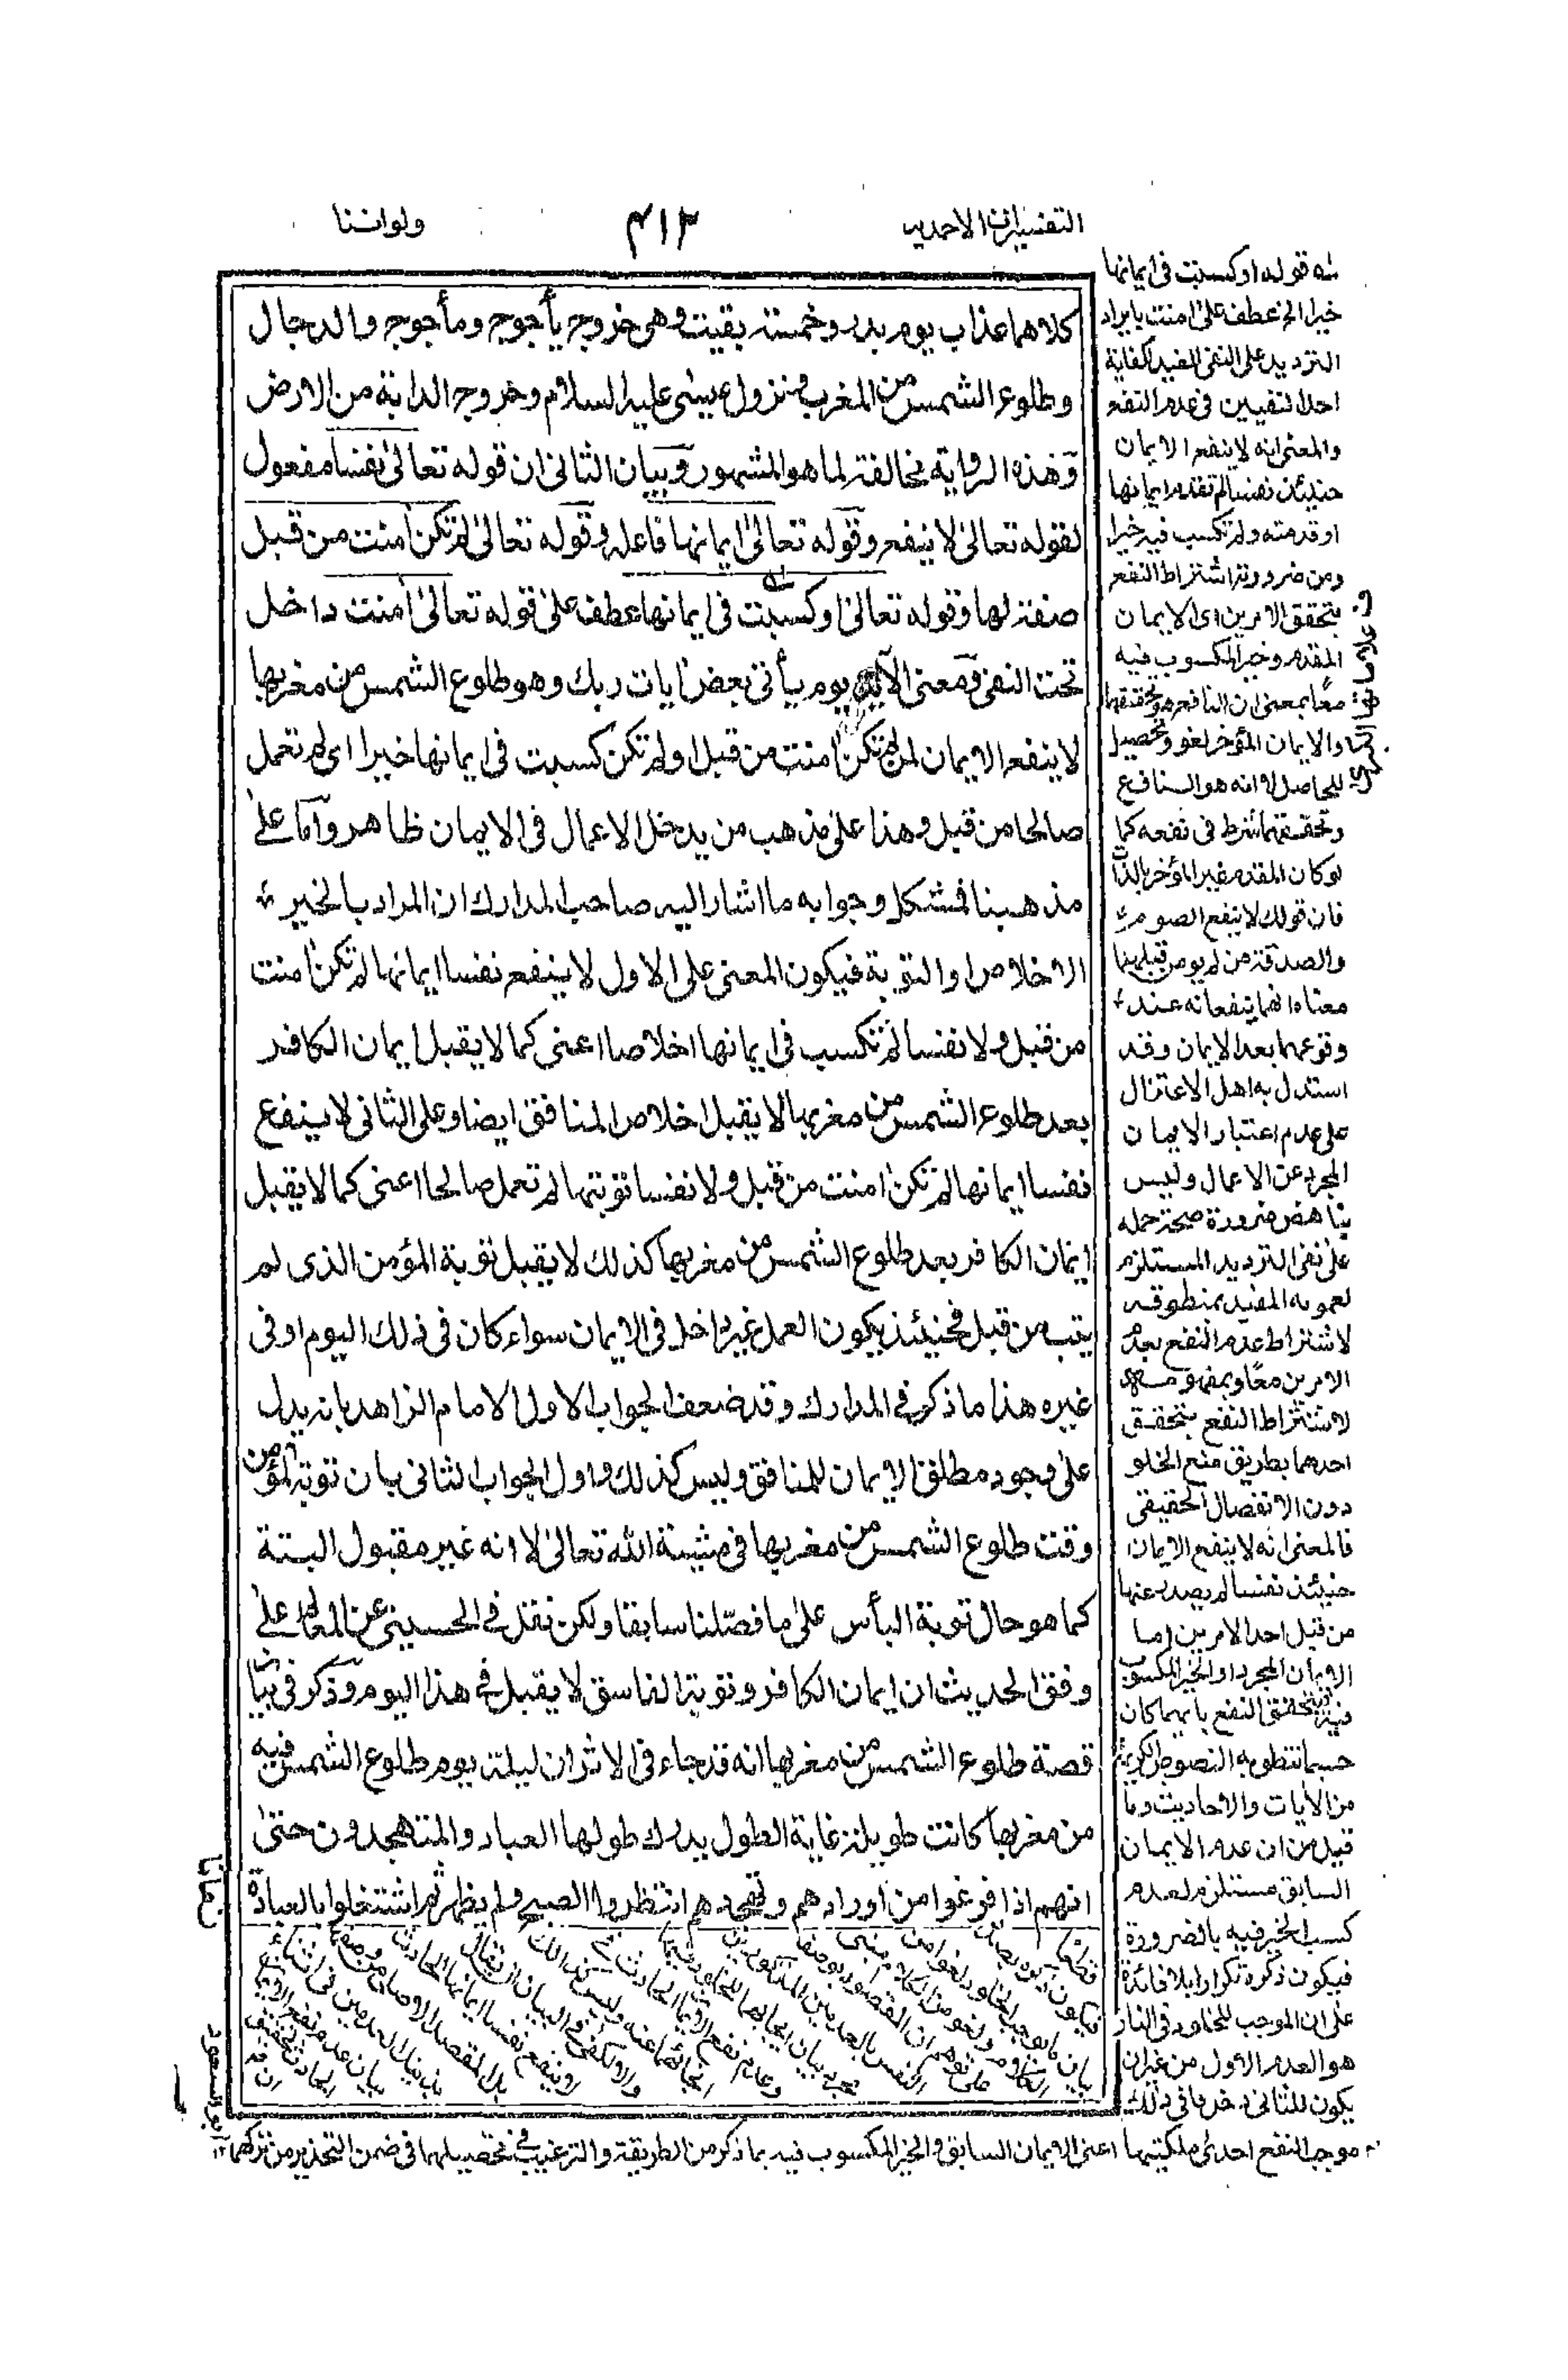 التفسيرات الاحمدية
٤١٣
ولواننا
كلاهما عذاب يوم بدر وخمسة بقيت وهى خروج يأجوج ومأجوج والدجال
وطلوع الشمس من المغرب ونزول عيسى عليه السلام وخروج الدابة من الارض
وهذه الرواية مخالفة لما هو المشهور وبيان الثانى ان قوله تعالى نفسا مفعول
لقوله تعالى لا ينفع وقوله تعالى ايمانها فاعله وقوله تعالى لم تكن امنت من قبل
صفة لها وقوله تعالى او كسبت فى ايمانها عطف على قوله تعالى امنت داخل
تحت النفى ومعنى الآية يوم يأتى بعض ايات ربك وهو طلوع الشمس من مغربها
لا ينفع الايمان لمن لم تكن امنت من قبل او لم تكن كسبت فى ايمانها خيرا اى لم تعمل
صالحا من قبل وهذا على مذهب من يدخل الاعمال فى الايمان ظاهر واما على
مذهبنا فمشكل وجوابه ما اشار اليه صاحب المدارك ان المراد بالخير
الاخلاص او التوبة فيكون المعنى على الاول لا ينفع نفسا ايمانها لم تكن امنت
من قبل ولا نفسا لم تكسب فى ايمانها اخلاصا اعنى كما لا يقبل ايمان الكافر
بعد طلوع الشمس من مغربها لا يقبل اخلاص المنافق ايضا وعلى الثانى لا ينفع
نفسا ايمانها لم تكن امنت من قبل ولا نفسا توبتها لم تعمل صالحا اعنى كما لا يقبل
ايمان الكافر بعد طلوع الشمس من مغربها كذلك لا يقبل توبة المؤمن الذى لم
يتب من قبل فحينئذ يكون العمل غير داخل فى الايمان سواء كان فى ذلك اليوم او فى
غيره هذا ما ذكر فى المدارك وقد ضعف الجواب الاول الامام الزاهد بانه يدل
على وجود مطلق الايمان للمنافق وليس كذلك واول الجواب الثانى بان توبة المؤمن
وقت طلوع الشمس من مغربها فى مشية الله تعالى لا انه غير مقبول البتة
كما هو حال توبة البأس على ما فصلنا سابقا ولكن نقل فى الحسينى عن المعالم على
وفق الحديث ان ايمان الكافر وتوبة الفاسق لا يقبل فى هذا اليوم وذكر فى بيان
قصة طلوع الشمس من مغربها انه قد جاء فى الاثر ان ليلة يوم طلوع الشمس فيه
من مغربها كانت طويلة غاية الطول يدرك طولها العباد والمتهجدون حتى
انهم اذا فرغوا من اورادهم وتهجدهم انتظروا الصبح ولم يظهر ثم اشتغلوا بالعبادة
قوله او كسبت فى ايمانها
خيرا الخ عطف على امنت بايراد
الترديد على النفى المفيد لكفاية
احد النفيين فى عدم النفع
والمعنى انه لا ينفع الايمان
حينئذ نفسا لم تقدم ايمانها
او قدمته ولم تكسب فيه خيرا
ومن ضرورته اشتراط النفع
بتحقق الامرين اى الايمان
المقدم وخير المكسوب فيه
معا بمعنى ان النافع هو تحققهما
والايمان المؤخر لغو وتحصيل
للحاصل لا انه هو النافع
وتحققهما شرط فى نفعه كما
لو كان المقدم غير المؤخر بالذات
فان قولك لا ينفع الصوم
والصدقة من لم يومن قبلهما
معناه انهما ينفعانه عند
وقوعهما بعد الايمان وقد
استدل به اهل الاعتزال
على عدم اعتبار الايمان
المجرد عن الاعمال وليس
بناهض ضرورة صحة حمله
على نفى الترديد المستلزم
لعمومه المفيد بمنطوقه
لاشتراط عدم النفع بعدم
الامرين معا وبمفهومه
لاشتراط النفع بتحقق
احدهما بطريق منع الخلو
دون الانفصال الحقيقى
فالمعنى انه لا ينفع الايمان
حينئذ نفسا لم يصدر عنها
من قبل احد الامرين اما
الايمان المجرد او الخير المكسوب
فيه فيتحقق النفع بايهما كان
حسبما تنطق به النصوص الكريمة
من الايات والاحاديث وما
قيل من ان عدم الايمان
السابق مستلزم لعدم
كسب الخير فيه بالضرورة
فيكون ذكره تكرارا بلا فائدة
على ان الموجب للخلود فى النار
هو العدم الاول من غير ان
يكون للثانى دخل ما فى ذلك
موجب النفع احدى ملكتيهما اعنى الايمان السابق والخير المكسوب فيه بما ذكر من الطريقة والترغيب فى تحصيلهما فى ضمن التحذير من تركهما ١٢